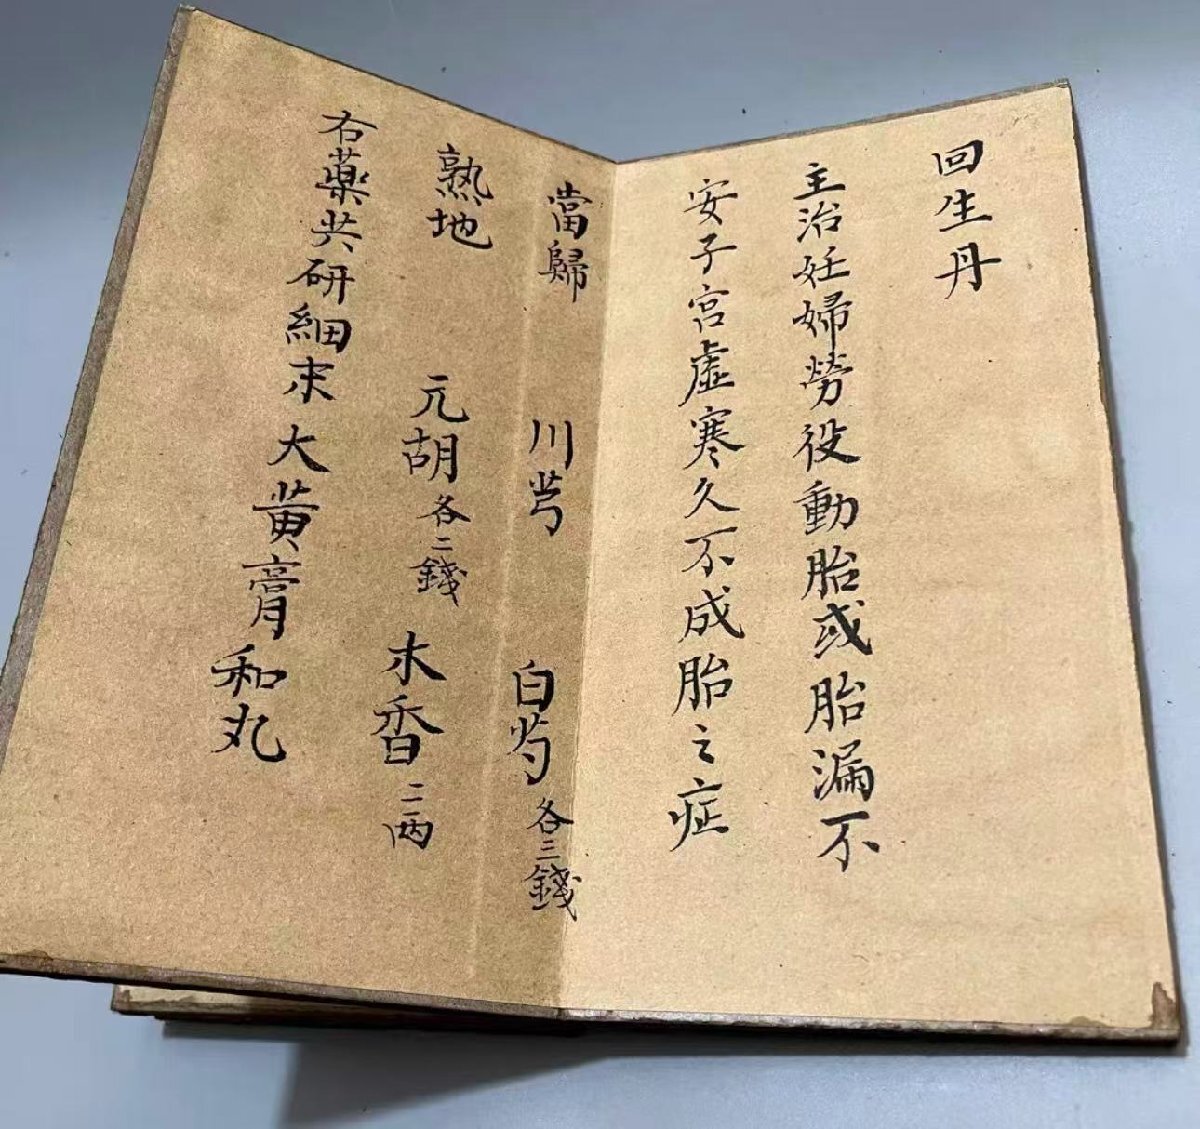 回生丹
主治妊婦勞役動胎或胎漏不
安子宮虛寒久不成胎之症
當歸 川芎 白芍各三錢
熟地 元胡各二錢 木香二两
右藥共研細末大黄膏和丸